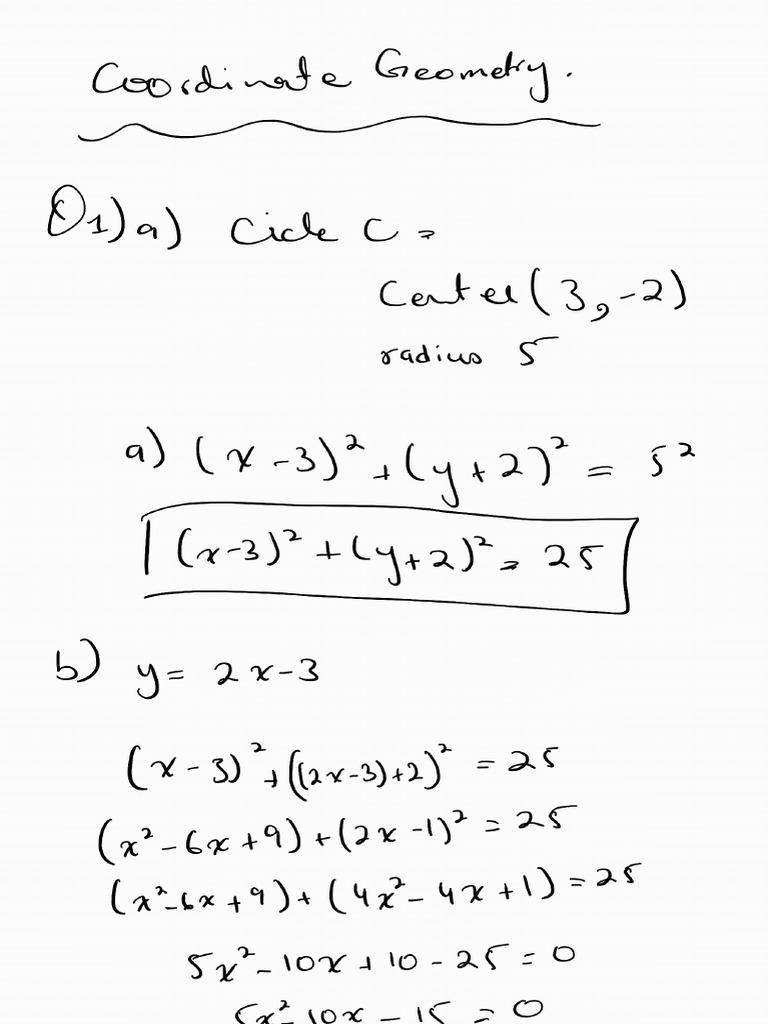 Coordinate Geometry.
Q1) a) Circle C =
Center (3, -2)
radius 5
a) (x-3)² + (y+2)² = 5²
(x-3)² + (y+2)² = 25
b) y = 2x-3
(x-3)² + ((2x-3)+2)² = 25
(x² - 6x + 9) + (2x - 1)² = 25
(x² - 6x + 9) + (4x² - 4x + 1) = 25
5x² - 10x + 10 - 25 = 0
5x² - 10x - 15 = 0